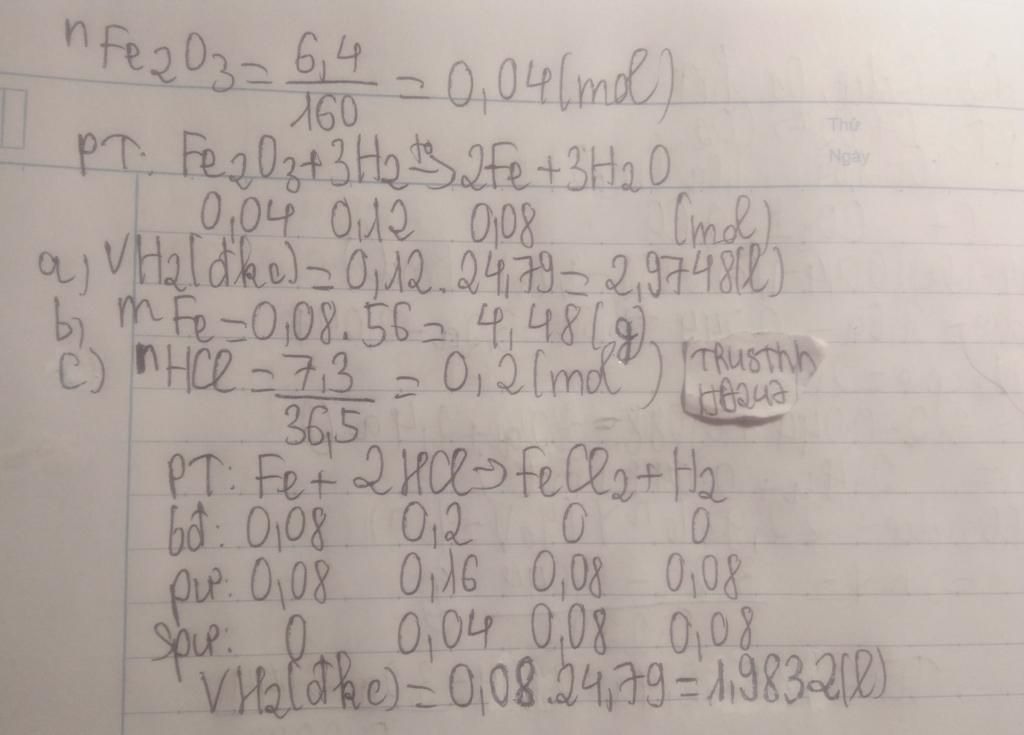 nFe2O3 = 6,4/160 = 0,04 (mol)
Thứ
Ngày
PT: Fe2O3 + 3H2 t°→ 2Fe + 3H2O
0,04 0,12 0,08 (mol)
a) VH2(đkc) = 0,12 . 24,79 = 2,9748(l)
b) mFe = 0,08 . 56 = 4,48(g)
c) nHCl = 7,3/36,5 = 0,2 (mol)
PT: Fe + 2HCl → FeCl2 + H2
bđ: 0,08 0,2 0 0
pư: 0,08 0,16 0,08 0,08
spư: 0 0,04 0,08 0,08
VH2(đkc) = 0,08 . 24,79 = 1,9832(l)